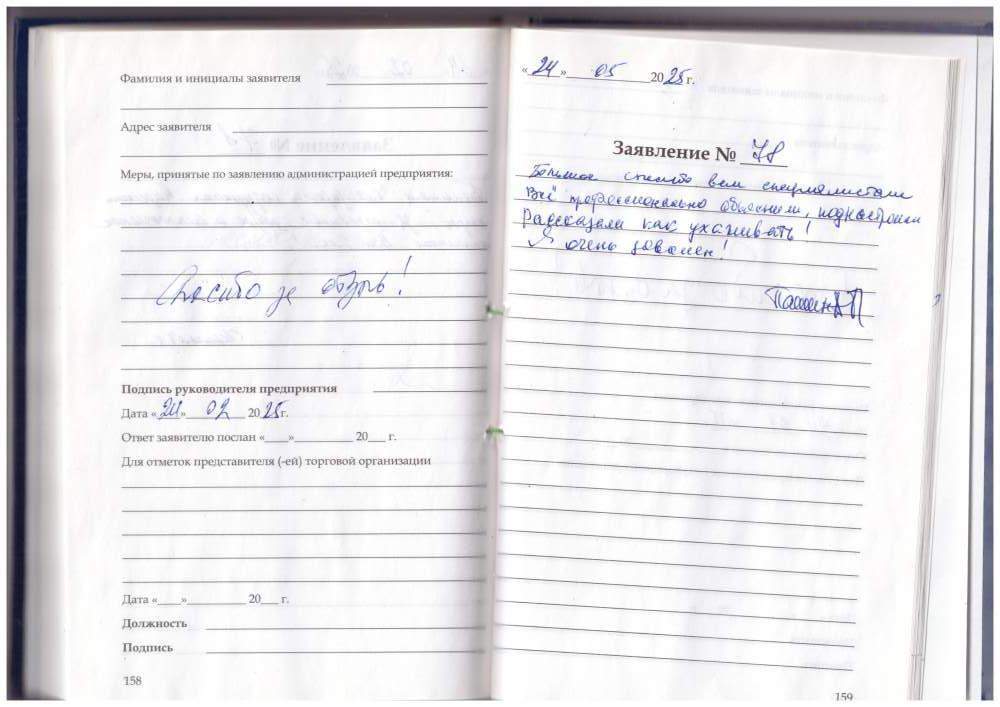 Фамилия и инициалы заявителя
Адрес заявителя
Меры, принятые по заявлению администрацией предприятия:
Спасибо за отзыв!
Подпись руководителя предприятия
Дата «24» 02 2025г.
Ответ заявителю послан «___»__________ 20___ г.
Для отметок представителя (-ей) торговой организации
Дата «____»__________ 20___ г.
Должность
Подпись
158
«24» 05 2025г.
Заявление № 78
Большое спасибо всем специалистам
Всё профессионально объяснили, поднастроили
Рассказали как ухаживать!
Я очень доволен!
159